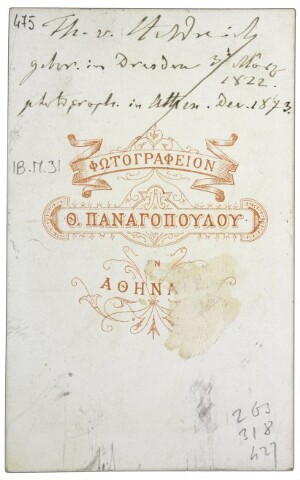 475
Th. v. Heldreich
gebor. in Dresden 3t März
1822.
photograph. in Athen. Dec. 1873.
1B.M.31
ΦΩΤΟΓΡΑΦΕΙΟΝ
Θ. ΠΑΝΑΓΟΠΟΥΛΟΥ
ΕΝ
ΑΘΗΝΑ
318
427